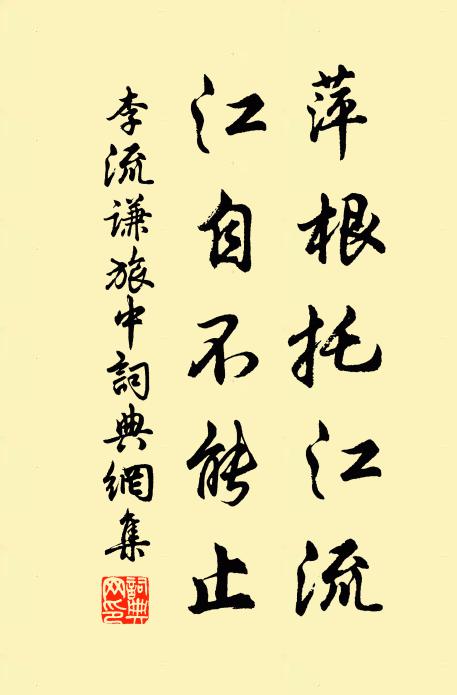 萍根托江流
江自不能止
李流谦旅中詞典網集
詞典網印